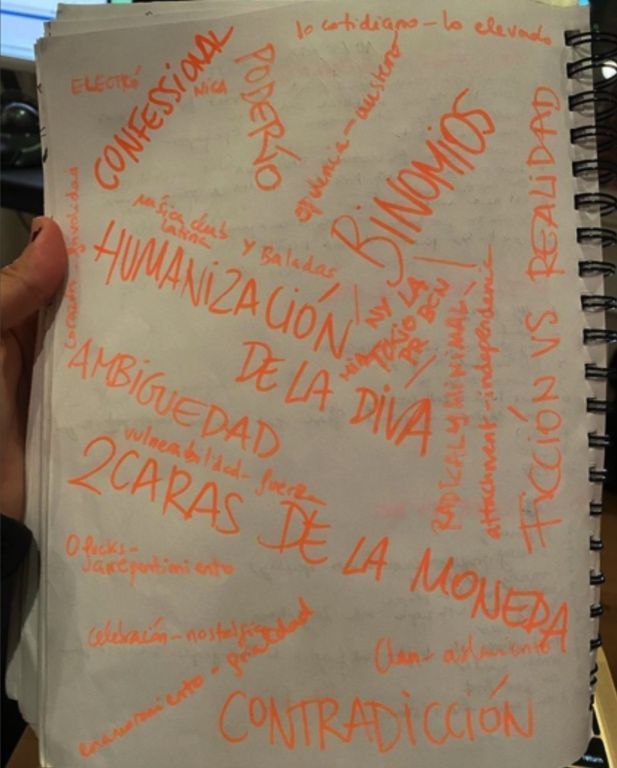 lo cotidiano - lo elevado
ELECTRÓ
NICA
CONFESSIONAL
PODERÍO
opulencia - austero
BINOMIOS
FICCIÓN VS REALIDAD
música club y Baladas
latina
HUMANIZACIÓN
DE LA DIVA
corazón - frivolidad
MIA NY
TOKIO LA
PR BCN
RADICAL y MINIMAL
attachment - independencia
AMBIGUEDAD
vulnerabilidad - fuerza
2 CARAS DE LA MONEDA
0 fucks -
arrepentimiento
celebración - nostalgia
Clan - aislamiento
enamoramiento - privacidad
CONTRADICCIÓN